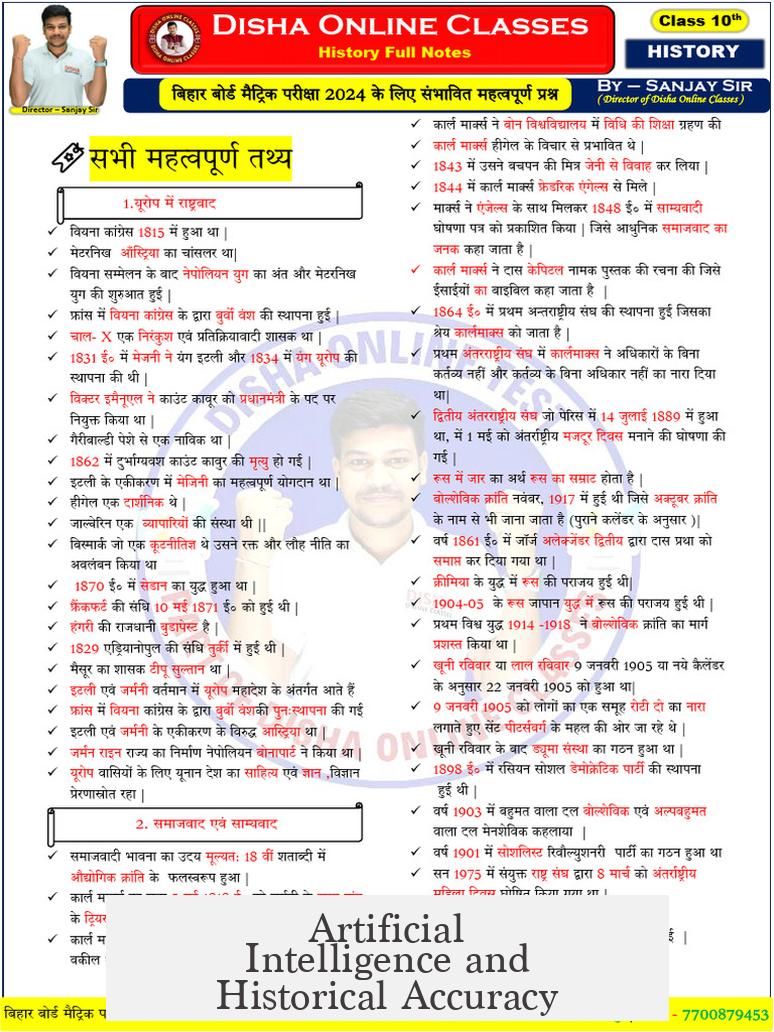 DISHA ONLINE CLASSES
History Full Notes
Class 10th
HISTORY
Director – Sanjay Sir
बिहार बोर्ड मैट्रिक परीक्षा 2024 के लिए संभावित महत्वपूर्ण प्रश्न
BY – SANJAY SIR
( Director of Disha Online Classes )
सभी महत्वपूर्ण तथ्य
1.यूरोप में राष्ट्रवाद
✓ वियना कांग्रेस 1815 में हुआ था |
✓ मेटरनिख ऑस्ट्रिया का चांसलर था|
✓ वियना सम्मेलन के बाद नेपोलियन युग का अंत और मेटरनिख
युग की शुरुआत हुई |
✓ फ्रांस में वियना कांग्रेस के द्वारा बुर्वो वंश की स्थापना हुई |
✓ चाल- X एक निरंकुश एवं प्रतिक्रियावादी शासक था |
✓ 1831 ई० में मेजनी ने यंग इटली और 1834 में यंग यूरोप की
स्थापना की थी |
✓ विक्टर इमैनूएल ने काउंट कावूर को प्रधानमंत्री के पद पर
नियुक्त किया था |
✓ गैरीवाल्डी पेशे से एक नाविक था |
✓ 1862 में दुर्भाग्यवश काउंट कावुर की मृत्यु हो गई |
✓ इटली के एकीकरण में मेजिनी का महत्वपूर्ण योगदान था |
✓ हीगेल एक दार्शनिक थे |
✓ जाल्वेरिन एक व्यापारियों की संस्था थी ||
✓ बिस्मार्क जो एक कूटनीतिज्ञ थे उसने रक्त और लौह नीति का
अवलंबन किया था
✓ 1870 ई० में सेडान का युद्ध हुआ था |
✓ फ्रैंकफर्ट की संधि 10 मई 1871 ई० को हुई थी |
✓ हंगरी की राजधानी बुडापेस्ट है |
✓ 1829 एड्रियानोपुल की संधि तुर्की में हुई थी |
✓ मैसूर का शासक टीपू सुल्तान था |
✓ इटली एवं जर्मनी वर्तमान में यूरोप महादेश के अंतर्गत आते हैं
✓ फ्रांस में वियना कांग्रेस के द्वारा बुर्वो वंशकी पुनःस्थापना की गई
✓ इटली एवं जर्मनी के एकीकरण के विरुद्ध आस्ट्रिया था |
✓ जर्मन राइन राज्य का निर्माण नेपोलियन बोनापार्ट ने किया था |
✓ यूरोप वासियों के लिए यूनान देश का साहित्य एवं ज्ञान ,विज्ञान
प्रेरणास्रोत रहा |
2. समाजवाद एवं साम्यवाद
✓ समाजवादी भावना का उदय मूल्यत: 18 वीं शताब्दी में
औद्योगिक क्रांति के फलस्वरूप हुआ |
✓ कार्ल
के ट्रियर
✓ कार्ल
वकील
✓ कार्ल मार्क्स ने बोन विश्वविद्यालय में विधि की शिक्षा ग्रहण की
✓ कार्ल मार्क्स हीगेल के विचार से प्रभावित थे |
✓ 1843 में उसने बचपन की मित्र जेनी से विवाह कर लिया |
✓ 1844 में कार्ल मार्क्स फ्रेडरिक एंगेल्स से मिले |
✓ मार्क्स ने एंजेल्स के साथ मिलकर 1848 ई० में साम्यवादी
घोषणा पत्र को प्रकाशित किया | जिसे आधुनिक समाजवाद का
जनक कहा जाता है |
✓ कार्ल मार्क्स ने दास केपिटल नामक पुस्तक की रचना की जिसे
ईसाईयों का बाइबिल कहा जाता है |
✓ 1864 ई० में प्रथम अन्तराष्ट्रीय संघ की स्थापना हुई जिसका
श्रेय कार्लमाक्स को जाता है |
✓ प्रथम अंतरराष्ट्रीय संघ में कार्लमाक्स ने अधिकारों के बिना
कर्तव्य नहीं और कर्तव्य के बिना अधिकार नहीं का नारा दिया
था|
✓ द्वितीय अंतरराष्ट्रीय संघ जो पेरिस में 14 जुलाई 1889 में हुआ
था, में 1 मई को अंतर्राष्ट्रीय मजदूर दिवस मनाने की घोषणा की
गई |
✓ रूस में जार का अर्थ रूस का सम्राट होता है |
✓ बोल्शेविक क्रांति नवंबर, 1917 में हुई थी जिसे अक्टूबर क्रांति
के नाम से भी जाना जाता है (पुराने कलेंडर के अनुसार )|
✓ वर्ष 1861 ई० में जॉर्ज अलेक्जेंडर द्वितीय द्वारा दास प्रथा को
समाप्त कर दिया गया था |
✓ क्रीमिया के युद्ध में रूस की पराजय हुई थी|
✓ 1904-05 के रूस जापान युद्ध में रूस की पराजय हुई थी |
✓ प्रथम विश्व युद्ध 1914 -1918 ने बोल्शेविक क्रांति का मार्ग
प्रशस्त किया था |
✓ खूनी रविवार या लाल रविवार 9 जनवरी 1905 या नये कैलेंडर
के अनुसार 22 जनवरी 1905 को हुआ था|
✓ 9 जनवरी 1905 को लोगों का एक समूह रोटी दो का नारा
लगाते हुए सेंट पीटर्सवर्ग के महल की ओर जा रहे थे |
✓ खूनी रविवार के बाद ड्यूमा संस्था का गठन हुआ था |
✓ 1898 ई० में रसियन सोशल डेमोक्रेटिक पार्टी की स्थापना
हुई थी |
✓ वर्ष 1903 में बहुमत वाला दल बोल्शेविक एवं अल्पबहुमत
वाला दल मेनशेविक कहलाया |
✓ वर्ष 1901 में सोशलिस्ट रिवौल्युशनरी पार्टी का गठन हुआ था
✓ सन 1975 में संयुक्त राष्ट्र संघ द्वारा 8 मार्च को अंतर्राष्ट्रीय
महिला दिवस घोषित किया गया था |
Artificial
Intelligence and
Historical Accuracy
बिहार बोर्ड मैट्रिक
- 7700879453
DISHA ONLINE TEST
PART OF DISHA ONLINE CLASSES